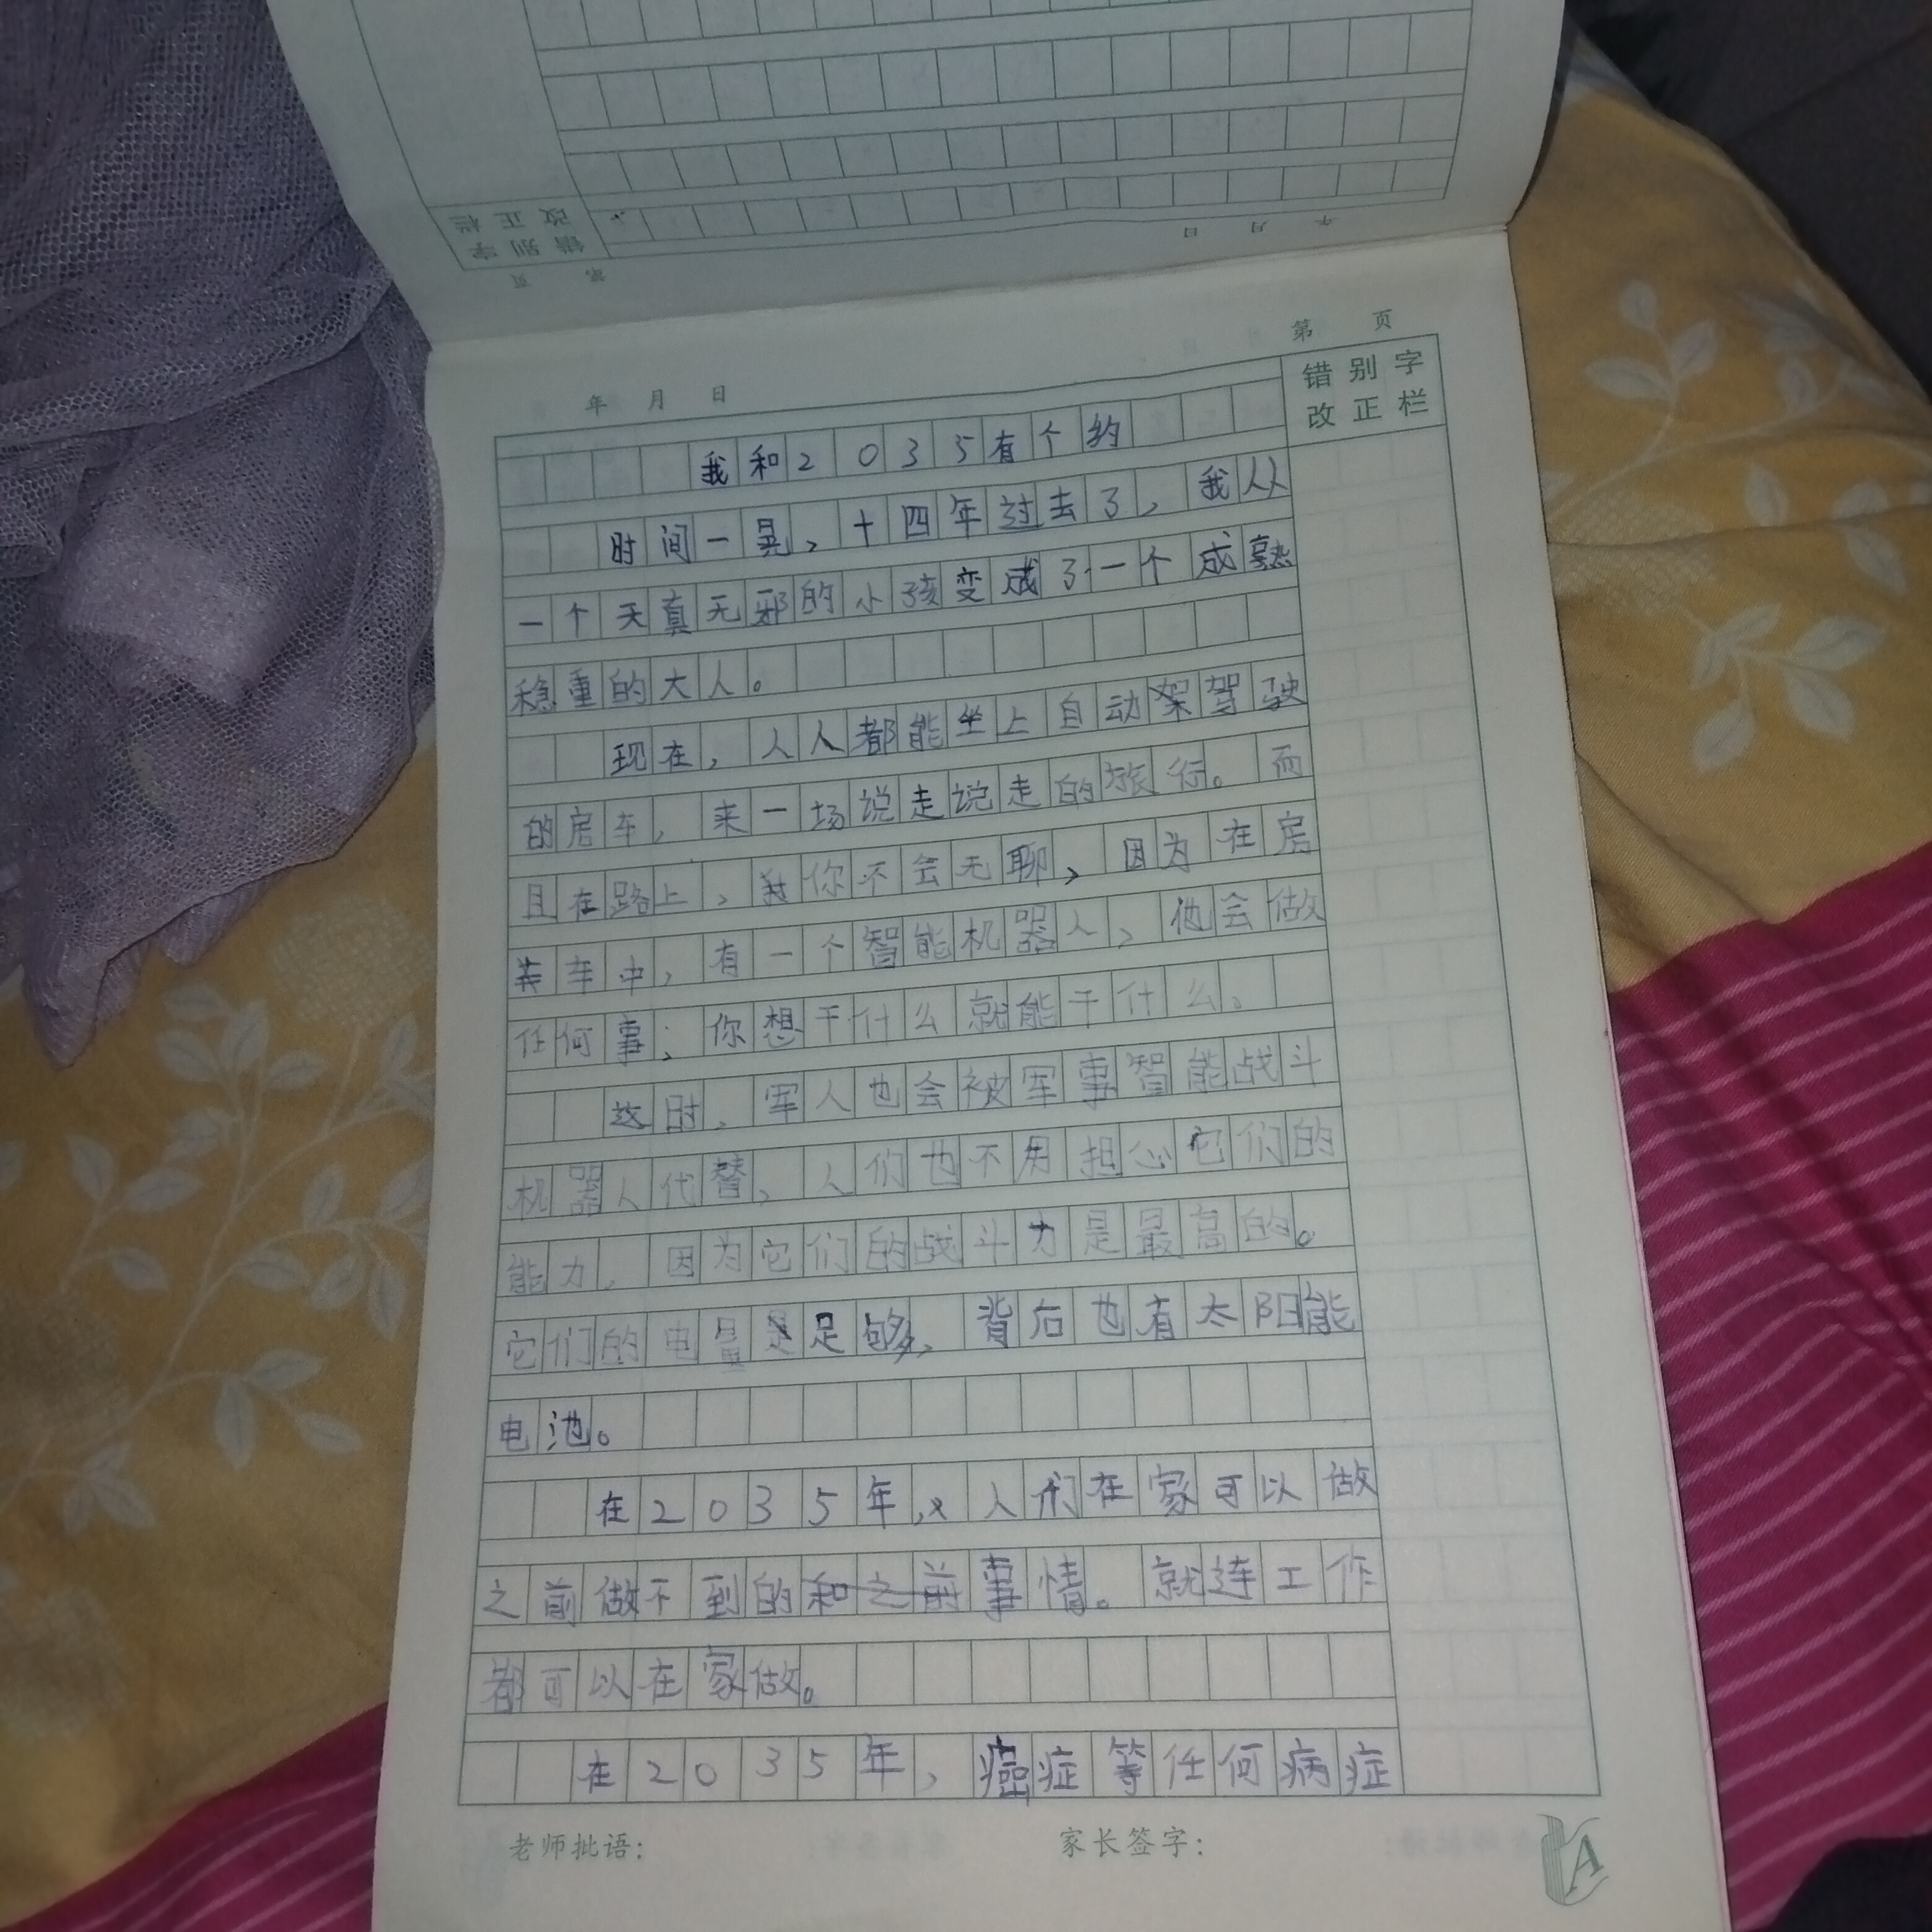 错别字
改正栏
第 页
年 月 日
第 页
年 月 日
错别字
改正栏
我和2035有个约
时间一晃，十四年过去了，我从
一个天真无邪的小孩变成了一个成熟
稳重的大人。
现在，人人都能坐上自动架驾驶
的房车，来一场说走说走的旅行。而
且在路上，你不会无聊，因为在房
车中，有一个智能机器人，他会做
任何事；你想干什么就能干什么。
这时，军人也会被军事智能战斗
机器人代替，人们也不用担心它们的
能力，因为它们的战斗力是最高的。
它们的电量足够，背后也有太阳能
电池。
在2035年，人们在家可以做
之前做不到的和之前事情。就连工作
都可以在家做。
在2035年，癌症等任何病症
老师批语：
家长签字：
A